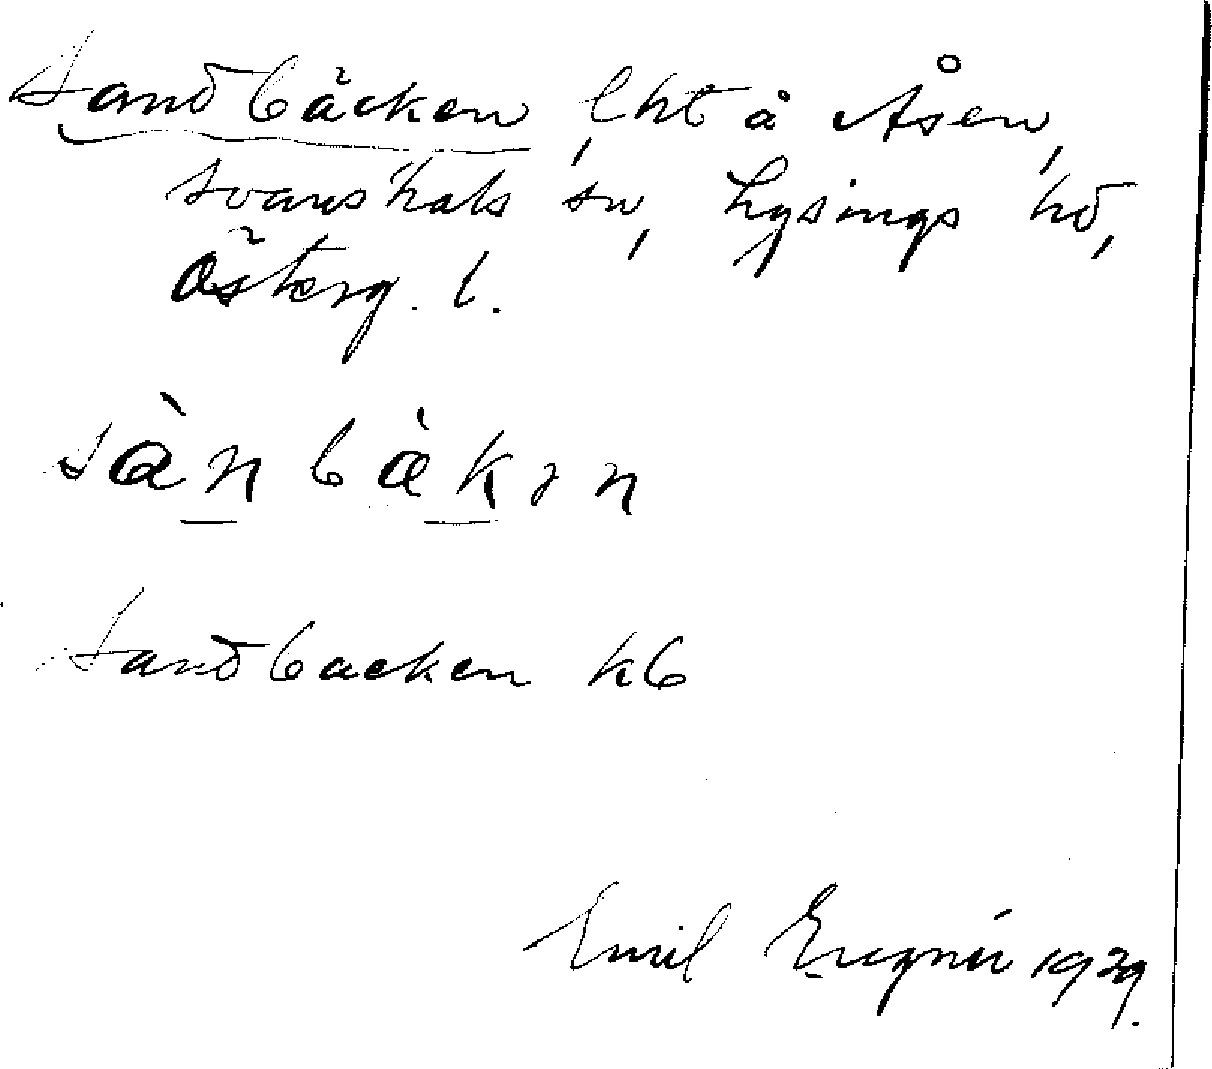 Sandbäcken, lht å Åsen,
Svanshals sn, Lysings hd,
Österg. l.
sàn bàkən
Sandbacken kb
Emil 1929.